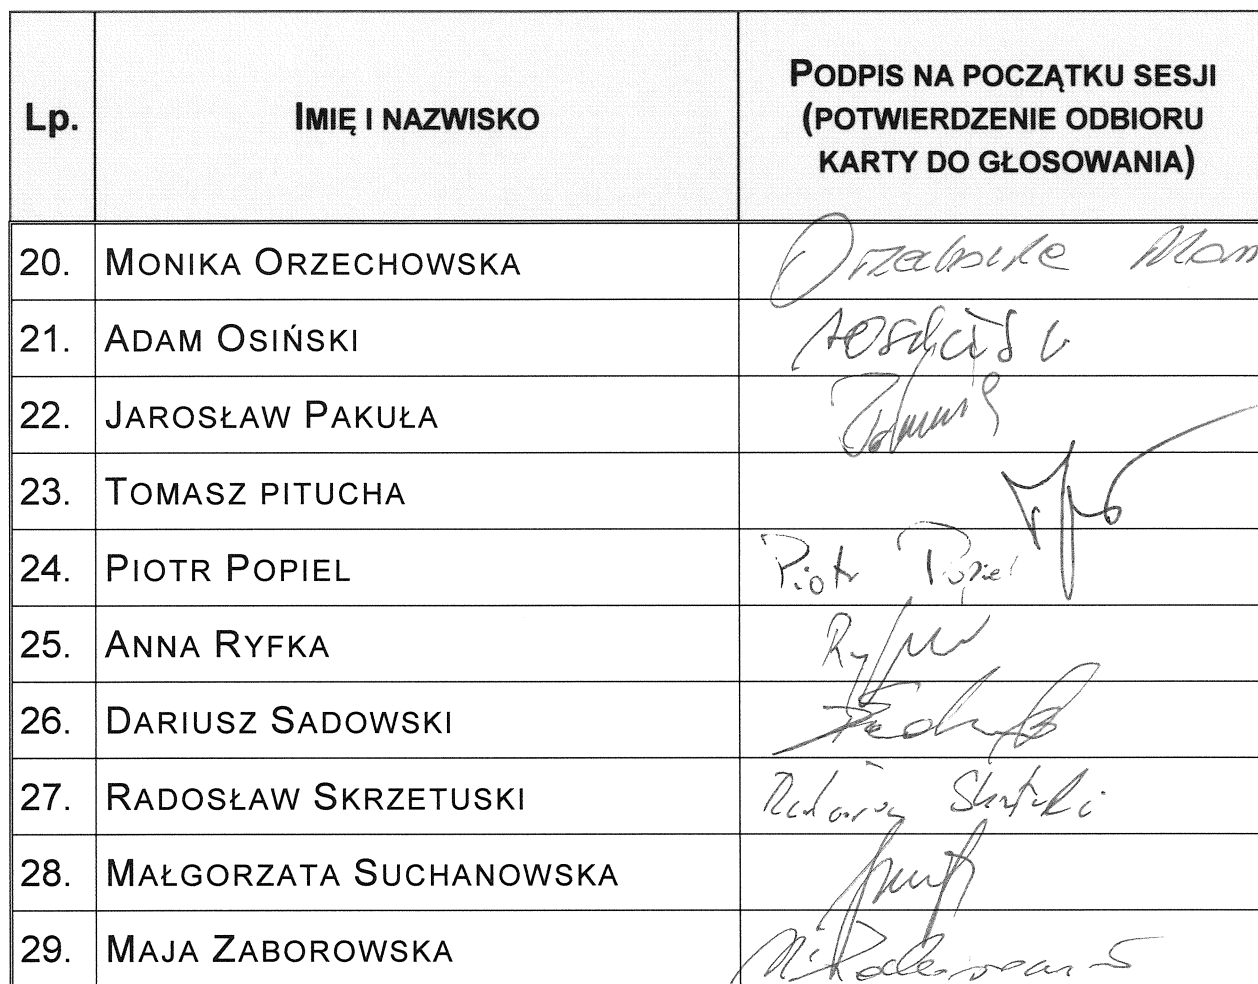 Lp.
IMIĘ I NAZWISKO
PODPIS NA POCZĄTKU SESJI
(POTWIERDZENIE ODBIORU
KARTY DO GŁOSOWANIA)
20. MONIKA ORZECHOWSKA
21. ADAM OSIŃSKI
22. JAROSŁAW PAKUŁA
23. TOMASZ PITUCHA
24. PIOTR POPIEL Piotr Popiel
25. ANNA RYFKA
26. DARIUSZ SADOWSKI
27. RADOSŁAW SKRZETUSKI
28. MAŁGORZATA SUCHANOWSKA
29. MAJA ZABOROWSKA